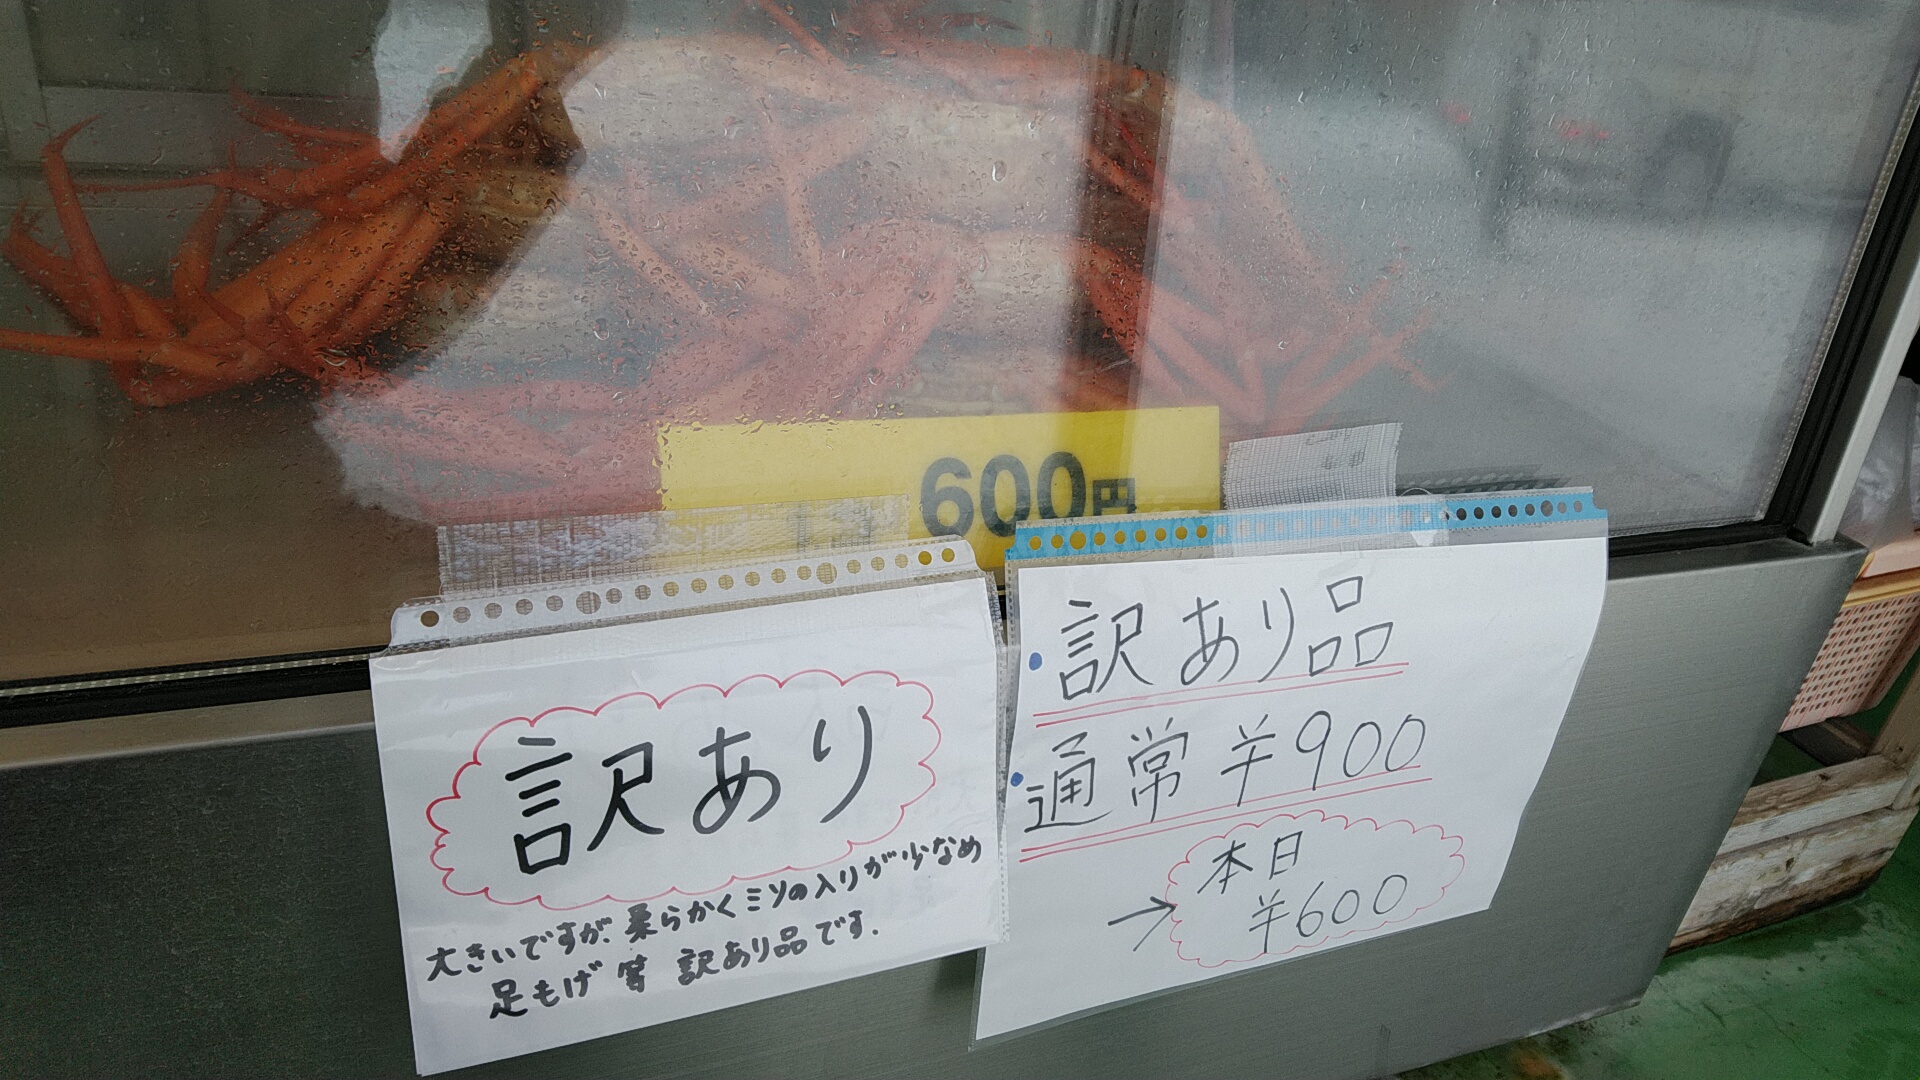 600円
訳あり
大きいですが、柔らかくミソの入りが少なめ
足もげ等 訳あり品です.
・訳あり品
・通常¥900
→ 本日
¥600